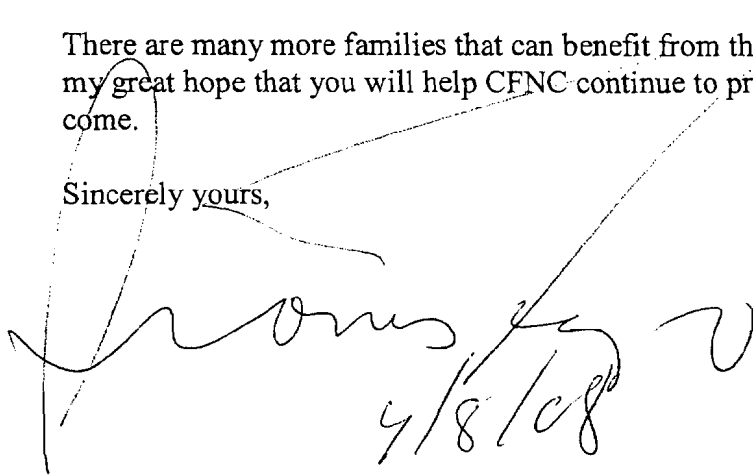 There are many more families that can benefit from th
my great hope that you will help CFNC continue to pr
come.
Sincerely yours,
4/8/08